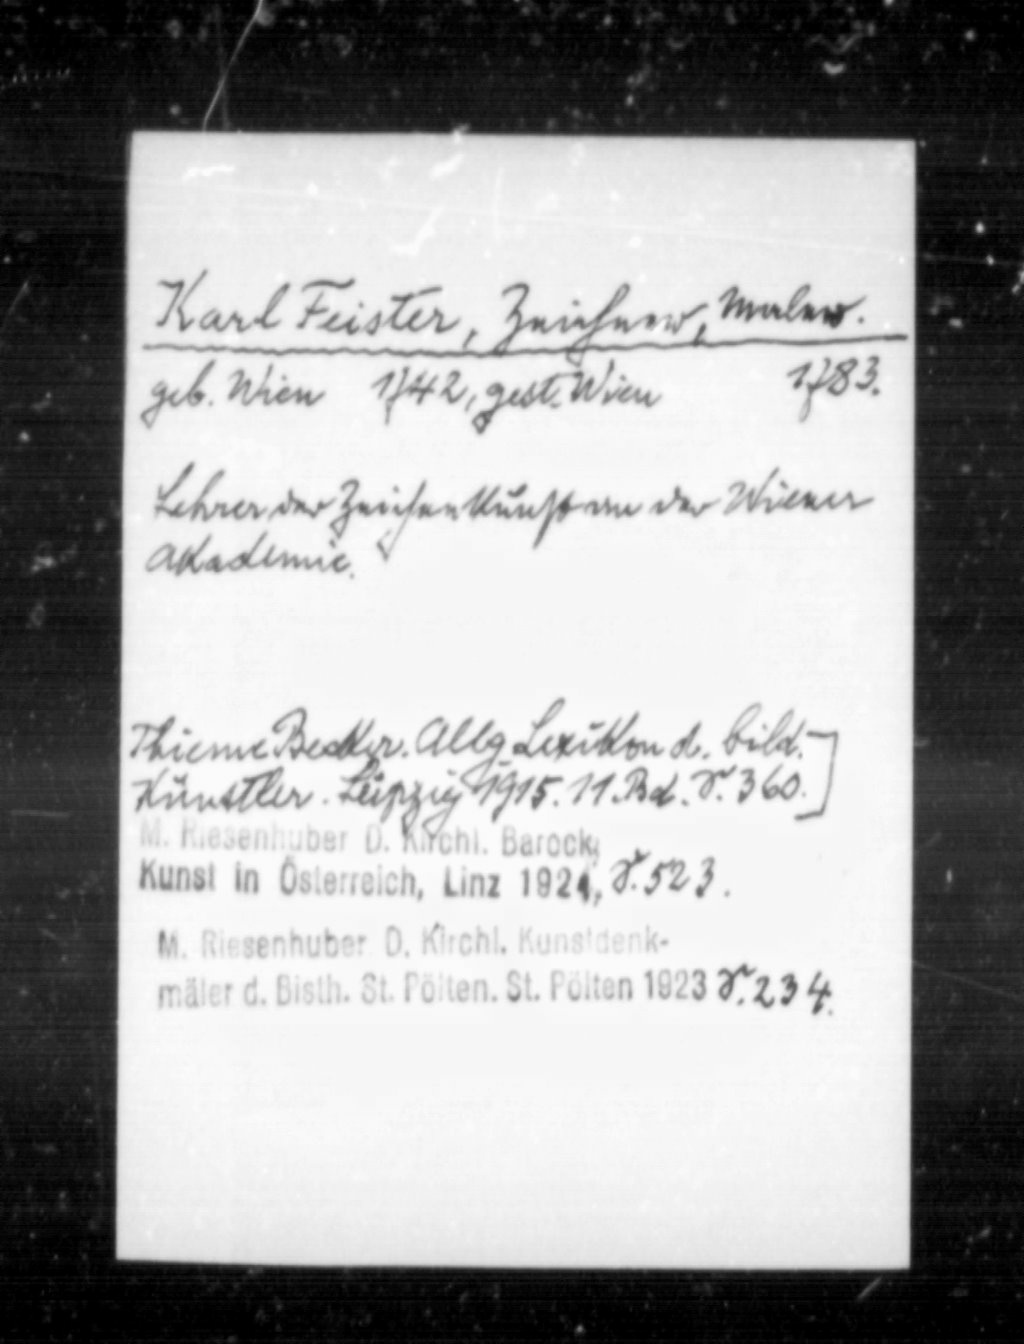 Karl Feister, Zeichner, Maler.
geb. Wien 1742, gest. Wien 1783.
Lehrer der Zeichenkunst an der Wiener
Akademie.
Thieme Becker. Allg. Lexikon d. bild.
Künstler. Leipzig 1915. 11. Bd. S. 360.]
M. Riesenhuber D. Kirchl. Barock,
Kunst in Österreich, Linz 1924, S. 523.
M. Riesenhuber D. Kirchl. Kunstdenk-
mäler d. Bisth. St. Pölten. St. Pölten 1923 S. 234.